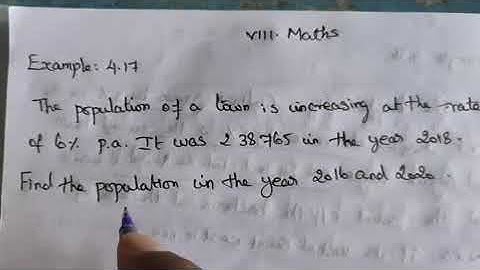 VIII. Maths
Example: 4.17
The population of a town is increasing at the rate
of 6% p.a. It was 238765 in the year 2018.
Find the population in the year 2016 and 2020.